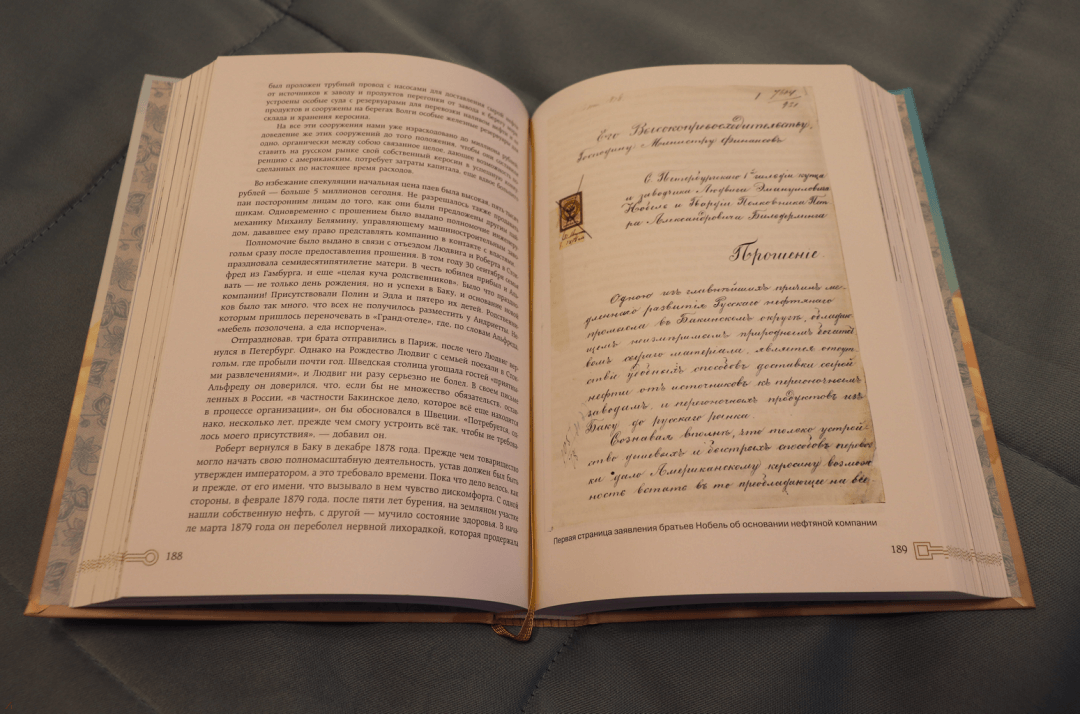 был проложен трубный провод с насосами для доставления сырой нефти
от источников к заводу и продуктов перегонки от завода в
устроены особые суда с резервуарами для перевозки наливом нефти и ее
продуктов и сооружены на берегах Волги особые железные резервуары для
склада и хранения керосина.
На все эти сооружения нами уже израсходовано до миллиона рублей,
доведение же этих сооружений до того положения, чтобы они составляли
одно, органически между собою связанное целое, дающее возможность
ставить на русском рынке свой собственный керосин в успешную конку-
ренцию с американским, потребует затраты капитала, еще более
сделанных по настоящее время расходов.
Во избежание спекуляции начальная цена паев была высокая, пять тысяч
рублей — больше 5 миллионов сегодня. Не разрешалось также продавать
паи посторонним лицам до того, как они были предложены другим пай-
щикам. Одновременно с прошением было выдано полномочие инженеру-
механику Михаилу Белямину, управляющему машиностроительным заво-
дом, дававшее ему право представлять компанию в контакте с властями.
Полномочие было выдано в связи с отъездом Людвига и Роберта в Сток-
гольм сразу после предоставления прошения. В том году 30 сентября семья
праздновала семидесятипятилетие матери. В честь юбилея прибыл и Аль-
фред из Гамбурга, и еще «целая куча родственников». Было что праздно-
вать — не только день рождения, но и успехи в Баку, и основание новой
компании! Присутствовали Полин и Эдла и пятеро их детей. Родственни-
ков было так много, что всех не получилось разместить у Андриетты. Не-
которым пришлось переночевать в «Гранд-отеле», где, по словам Альфреда,
«мебель позолочена, а еда испорчена».
Отпраздновав, три брата отправились в Париж, после чего Людвиг вер-
нулся в Петербург. Однако на Рождество Людвиг с семьей поехали в Сток-
гольм, где пробыли почти год. Шведская столица угощала гостей «приятны-
ми развлечениями», и Людвиг ни разу серьезно не болел. В своем письме
Альфреду он доверился, что, если бы не множество обязательств, остав-
ленных в России, «в частности Бакинское дело, которое всё еще находится
в процессе организации», он бы обосновался в Швеции. «Потребуется, од-
нако, несколько лет, прежде чем смогу устроить всё так, чтобы не требова-
лось моего присутствия», — добавил он.
Роберт вернулся в Баку в декабре 1878 года. Прежде чем товарищество
могло начать свою полномасштабную деятельность, устав должен был быть
утвержден императором, а это требовало времени. Пока что дело велось, как
и прежде, от его имени, что вызывало в нем чувство дискомфорта. С одной
стороны, в феврале 1879 года, после пяти лет бурения, на земляном участке
нашли собственную нефть, с другой — мучило состояние здоровья. В нача-
ле марта 1879 года он переболел нервной лихорадкой, которая продержала
188
Его Высокопревосходительству,
Господину Министру Финансовъ
С. Петербургскаго 1ой гильдіи купца
и заводчика Людвига Эммануиловича
Нобель и Гвардіи Полковника Пет-
ра Александровича Бильдерлинга
Прошеніе
Одною изъ главнѣйшихъ причинъ ме-
дленнаго развитія Русскаго нефтянаго
промысла въ Бакинскомъ округѣ, обладаю-
щемъ неисчерпаемымъ природнымъ богатст-
вомъ сыраго матеріала, является отсутс-
твіе удобныхъ способовъ доставки сырой
нефти отъ источниковъ къ перегоночнымъ
заводамъ, и перегоночныхъ продуктовъ изъ
Баку до русскаго рынка.
Сознавая вполнѣ, что только устрой-
ство дешевыхъ и быстрыхъ способовъ перевоз-
ки дало Американскому керосину возмож-
ность встать въ то преобладающее на все-
Первая страница заявления братьев Нобель об основании нефтяной компании
189